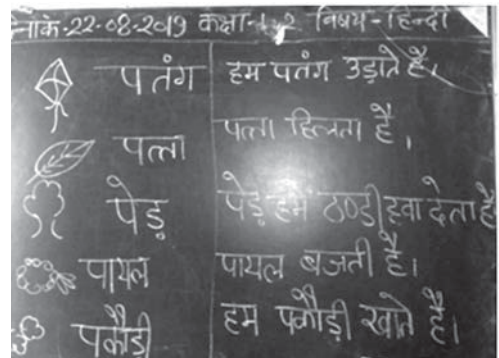 नांक-22-08-2019 कक्षा-1,2 विषय-हिन्दी
पतंग हम पतंग उड़ाते है।
पत्ता पत्ता हिलता है।
पेड़ पेड़ हमें ठण्डी हवा देता है
पायल पायल बजती है।
पकौड़ी हम पकौड़ी खाते है।